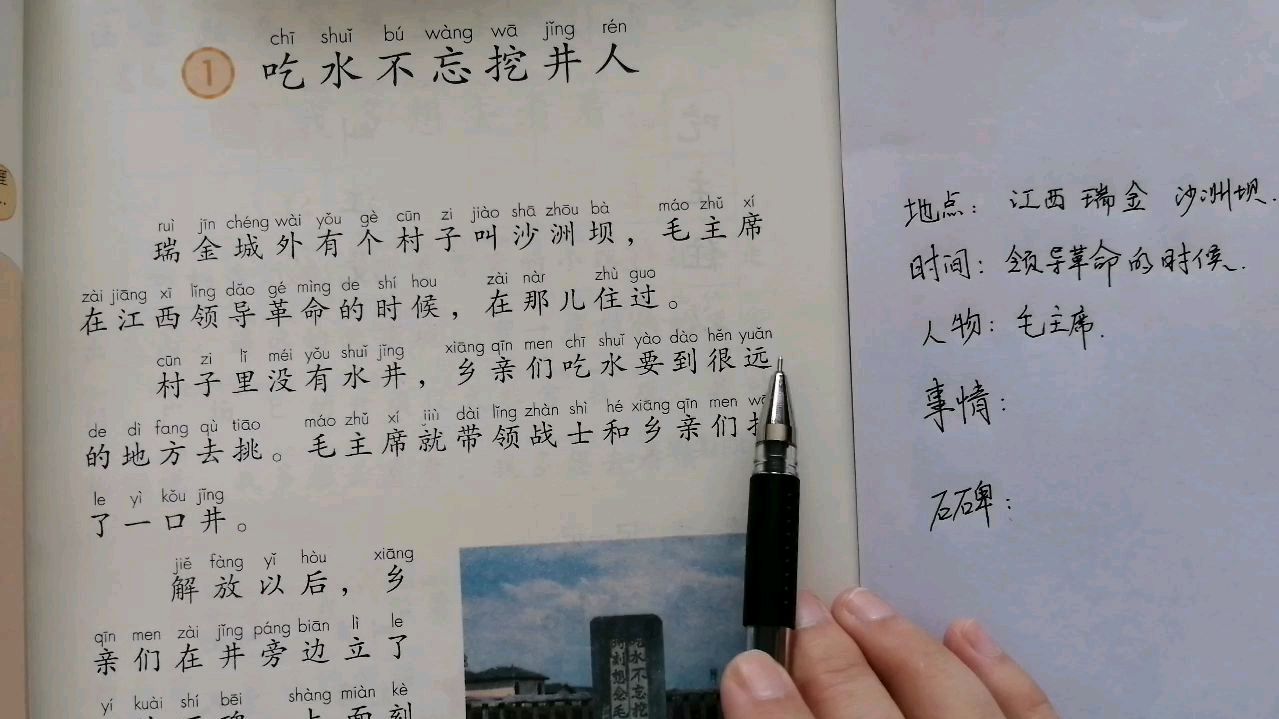 chī shuǐ bú wàng wā jǐng rén
1 吃水不忘挖井人
ruì jīn chéng wài yǒu gè cūn zi jiào shā zhōu bà máo zhǔ xí
瑞金城外有个村子叫沙洲坝，毛主席
zài jiāng xī lǐng dǎo gé mìng de shí hou zài nàr zhù guo
在江西领导革命的时候，在那儿住过。
cūn zi lǐ méi yǒu shuǐ jǐng xiāng qīn men chī shuǐ yào dào hěn yuǎn
村子里没有水井，乡亲们吃水要到很远
de dì fang qù tiāo máo zhǔ xí jiù dài lǐng zhàn shì hé xiāng qīn men
的地方去挑。毛主席就带领战士和乡亲们
le yì kǒu jǐng
了一口井。
jiě fàng yǐ hòu xiāng
解放以后，乡
qīn men zài jǐng páng biān lì le
亲们在井旁边立了
yí kuài shí bēi shàng miàn kè
吃水不忘挖
时刻想念毛
地点：江西瑞金 沙洲坝.
时间：领导革命的时候.
人物：毛主席.
事情：
石碑：